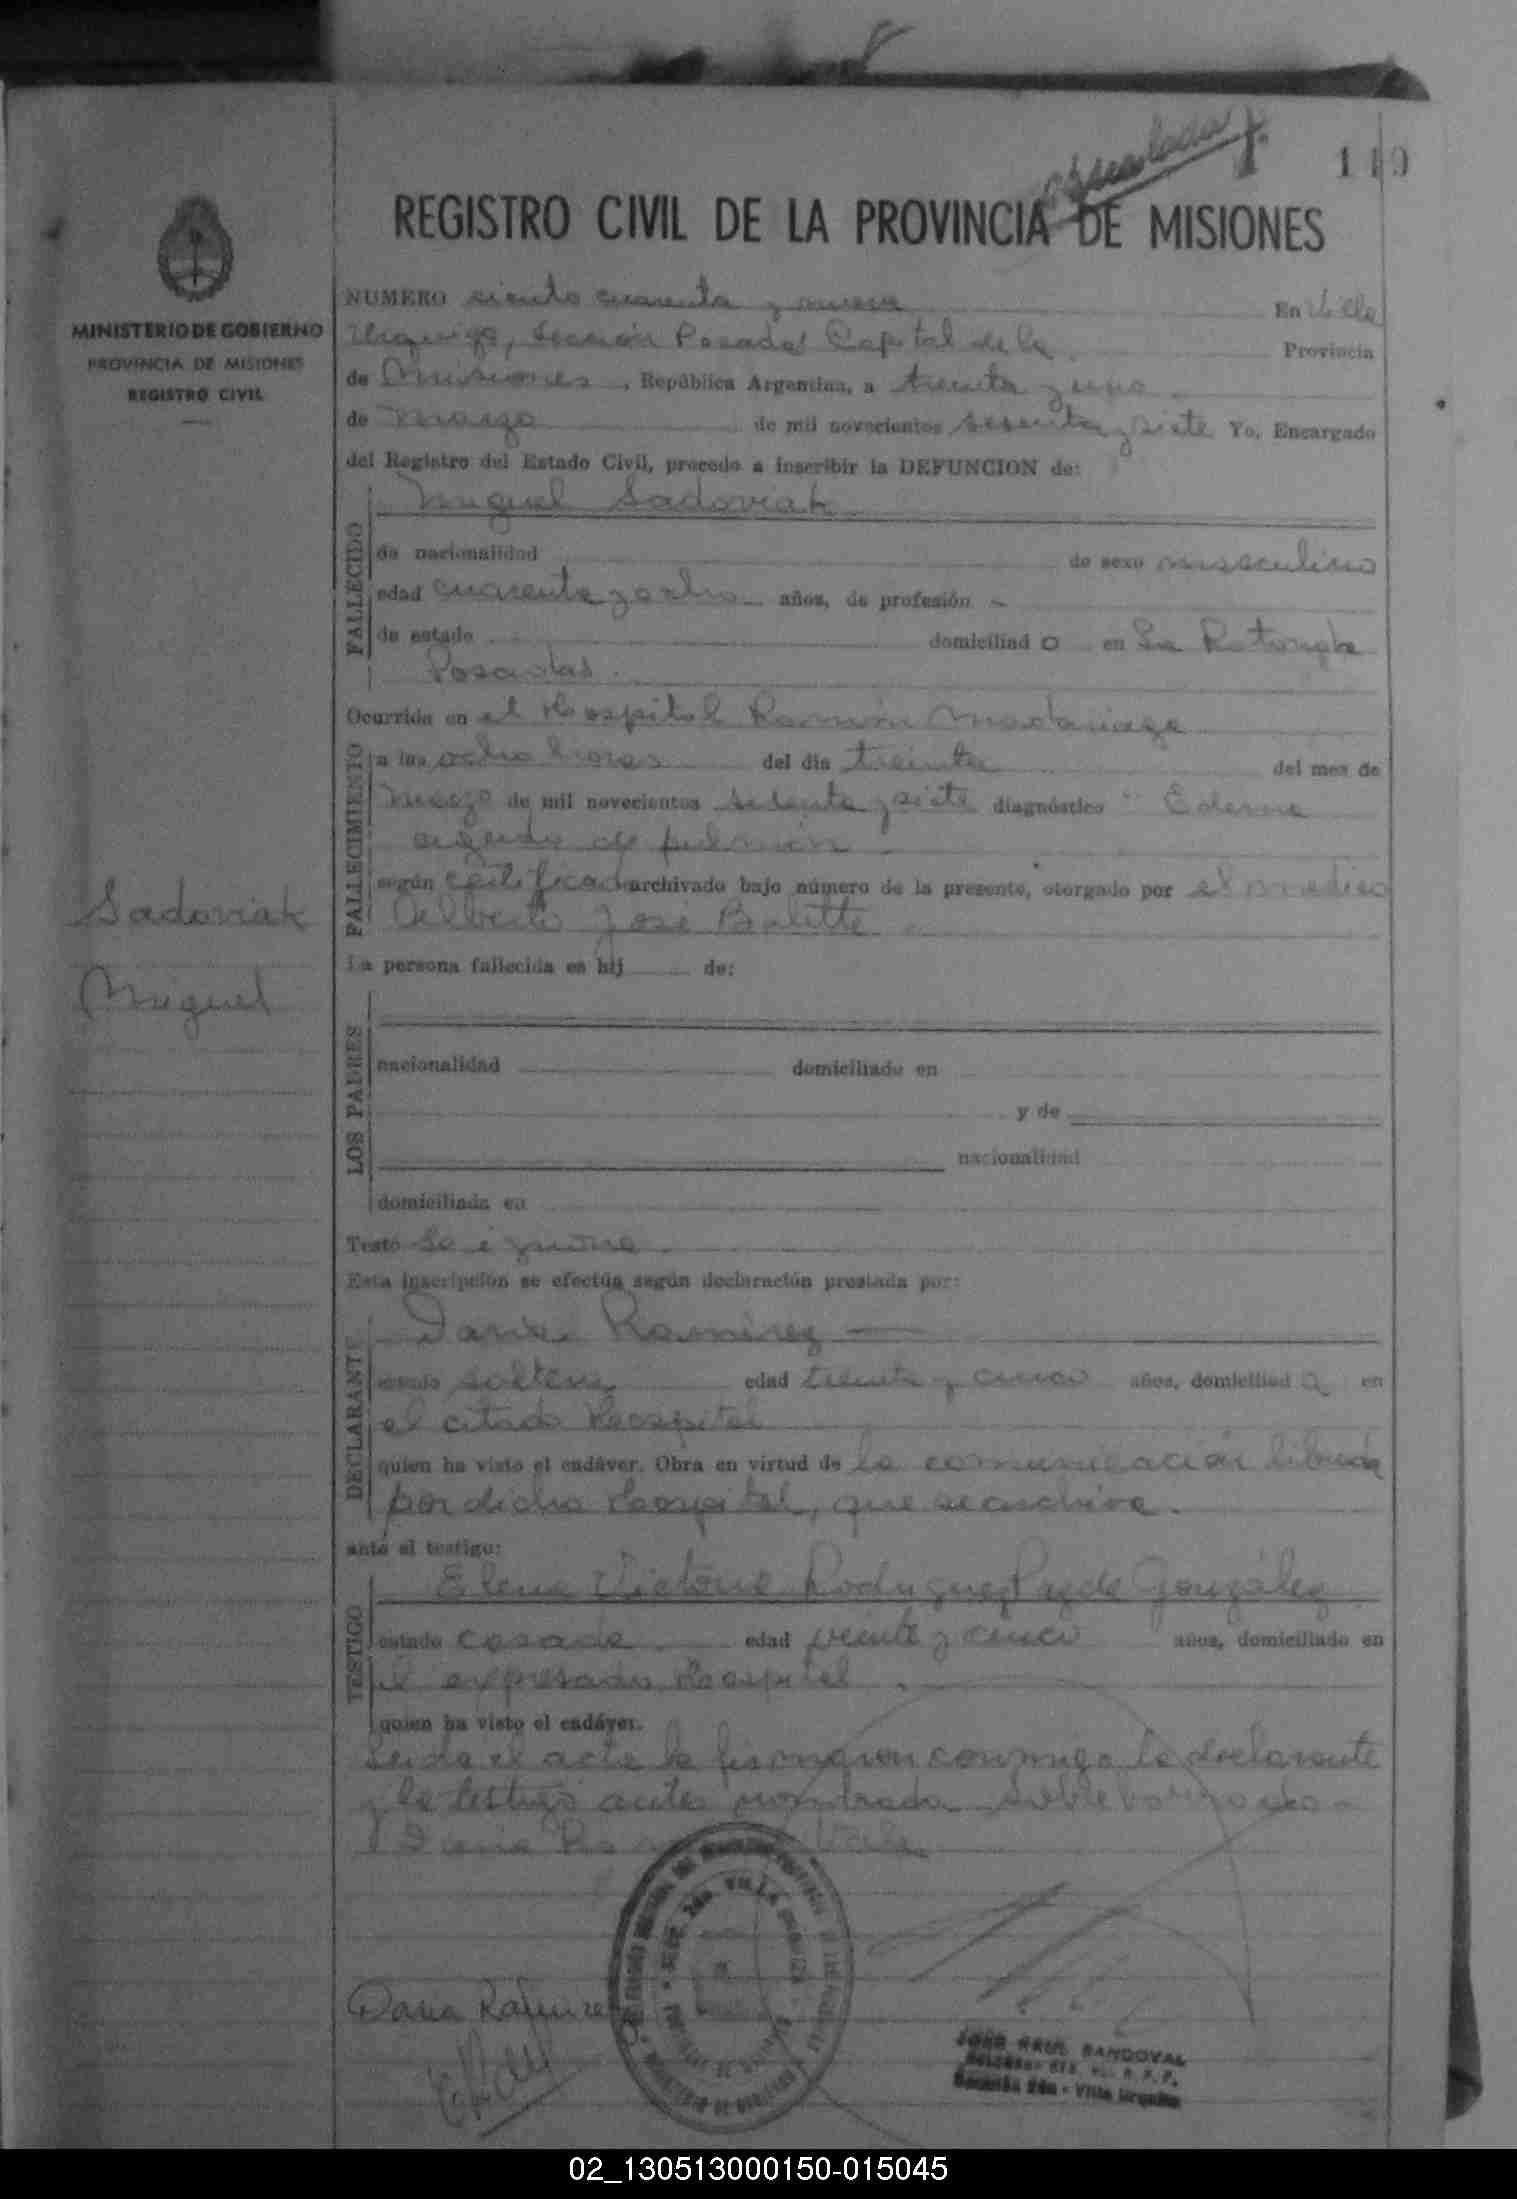 149
REGISTRO CIVIL DE LA PROVINCIA DE MISIONES
MINISTERIO DE GOBIERNO
PROVINCIA DE MISIONES
REGISTRO CIVIL
NUMERO ciento cuarenta y nueve En Villa
Urquiza, Sección Posadas Capital de la Provincia
de Misiones, República Argentina, a treinta y uno
de marzo de mil novecientos sesenta y siete Yo, Encargado
del Registro del Estado Civil, procedo a inscribir la DEFUNCION de:
FALLECIDO
Miguel Sadoviak
de nacionalidad de sexo masculino
edad cuarenta y ocho años, de profesión -
de estado domiciliad o en La Rotonda
Posadas.
FALLECIMIENTO
Ocurrida en el Hospital Ramón Madariaga
a las ocho horas del día treinta del mes de
marzo de mil novecientos sesenta y siete diagnóstico "Edema
agudo de pulmón
según certificado archivado bajo número de la presente, otorgado por el medico
Alberto José
Sadoviak
Miguel
La persona fallecida es hij de:
LOS PADRES
nacionalidad domiciliado en
y de
nacionalidad
domiciliada en
Testó Se ignora.
Esta inscripción se efectúa según declaración prestada por:
DECLARANTE
Daria Ramirez —
estado soltera edad treinta y cinco años, domiciliad a en
el citado Hospital
quien ha visto el cadáver. Obra en virtud de la comunicación librada
por dicho Hospital, que se archiva.
ante el testigo:
TESTIGO
Elena Victoria Rodriguez Paz de González
estado casada edad veinte y cinco años, domiciliado en
el expresado Hospital.
quien ha visto el cadáver.
Leida el acta la firmaron conmigo la declarante
y la testigo antes nombrada
Vale
Daria Ramirez
SECC. 2da. VILLA URQUIZA
MINISTERIO DE GOBIERNO
JOSE RAUL SANDOVAL
Sección 2da - Villa Urquiza
02_130513000150-015045